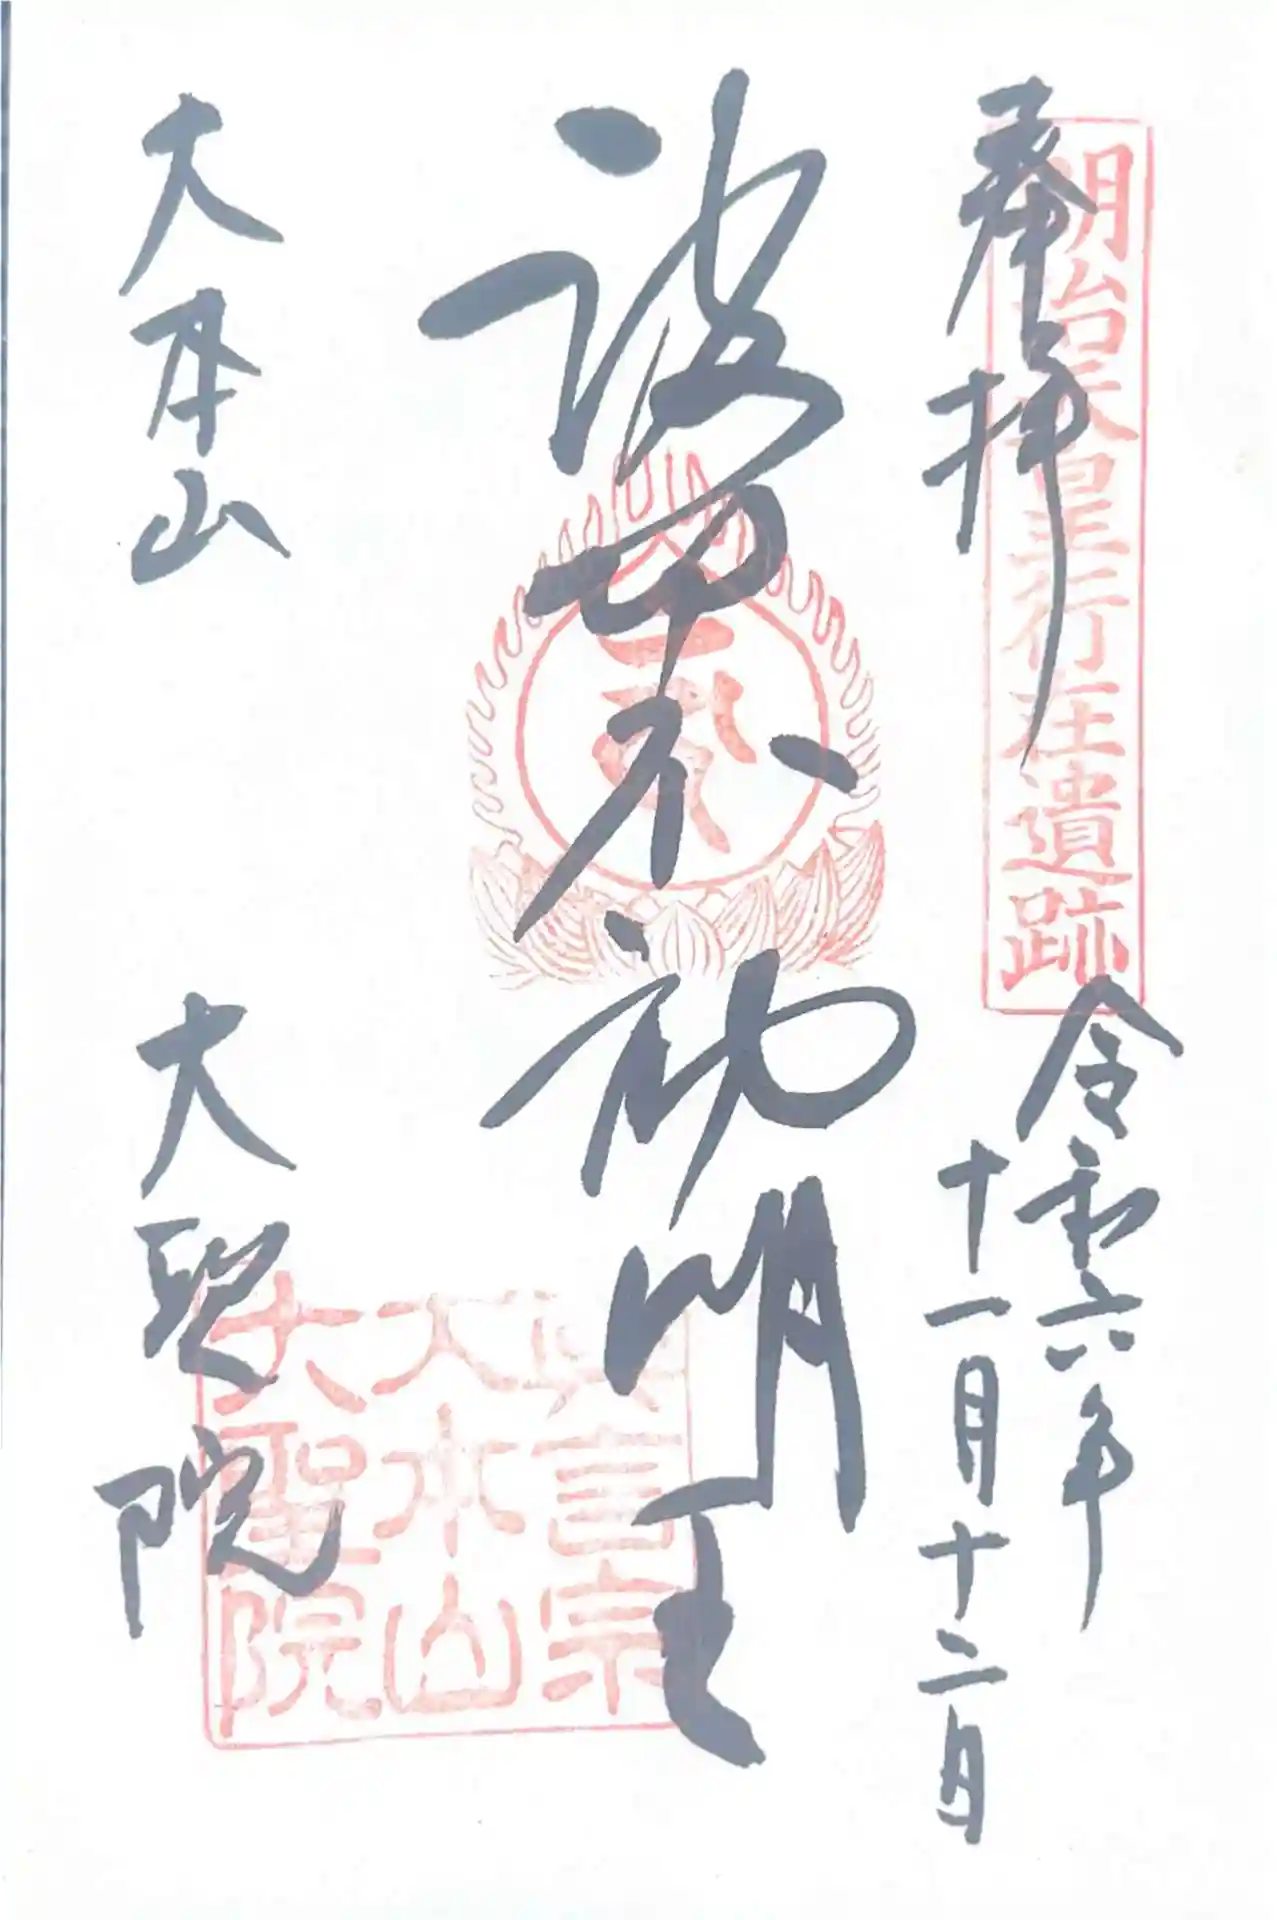 奉拝
明治天皇行在遺跡
令和六年
十一月十二日
波切不動明王
真言宗
大本山
大聖院
大本山 大聖院